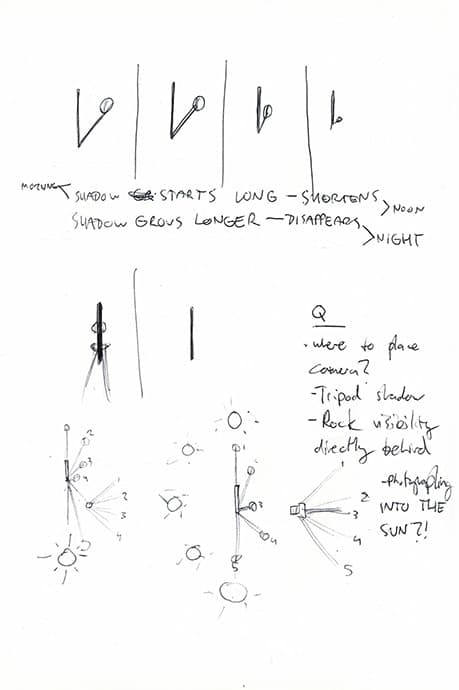 MORNING
SHADOW STARTS LONG - SHORTENS
NOON
SHADOW GROWS LONGER - DISAPPEARS
NIGHT
Q
- where to place
camera?
- Tripod shadow
- Rock visibility
directly behind
- Photographing
INTO THE
SUN?!
2
3
4
1
2
3
4
1
3
4
5
1
2
3
4
5